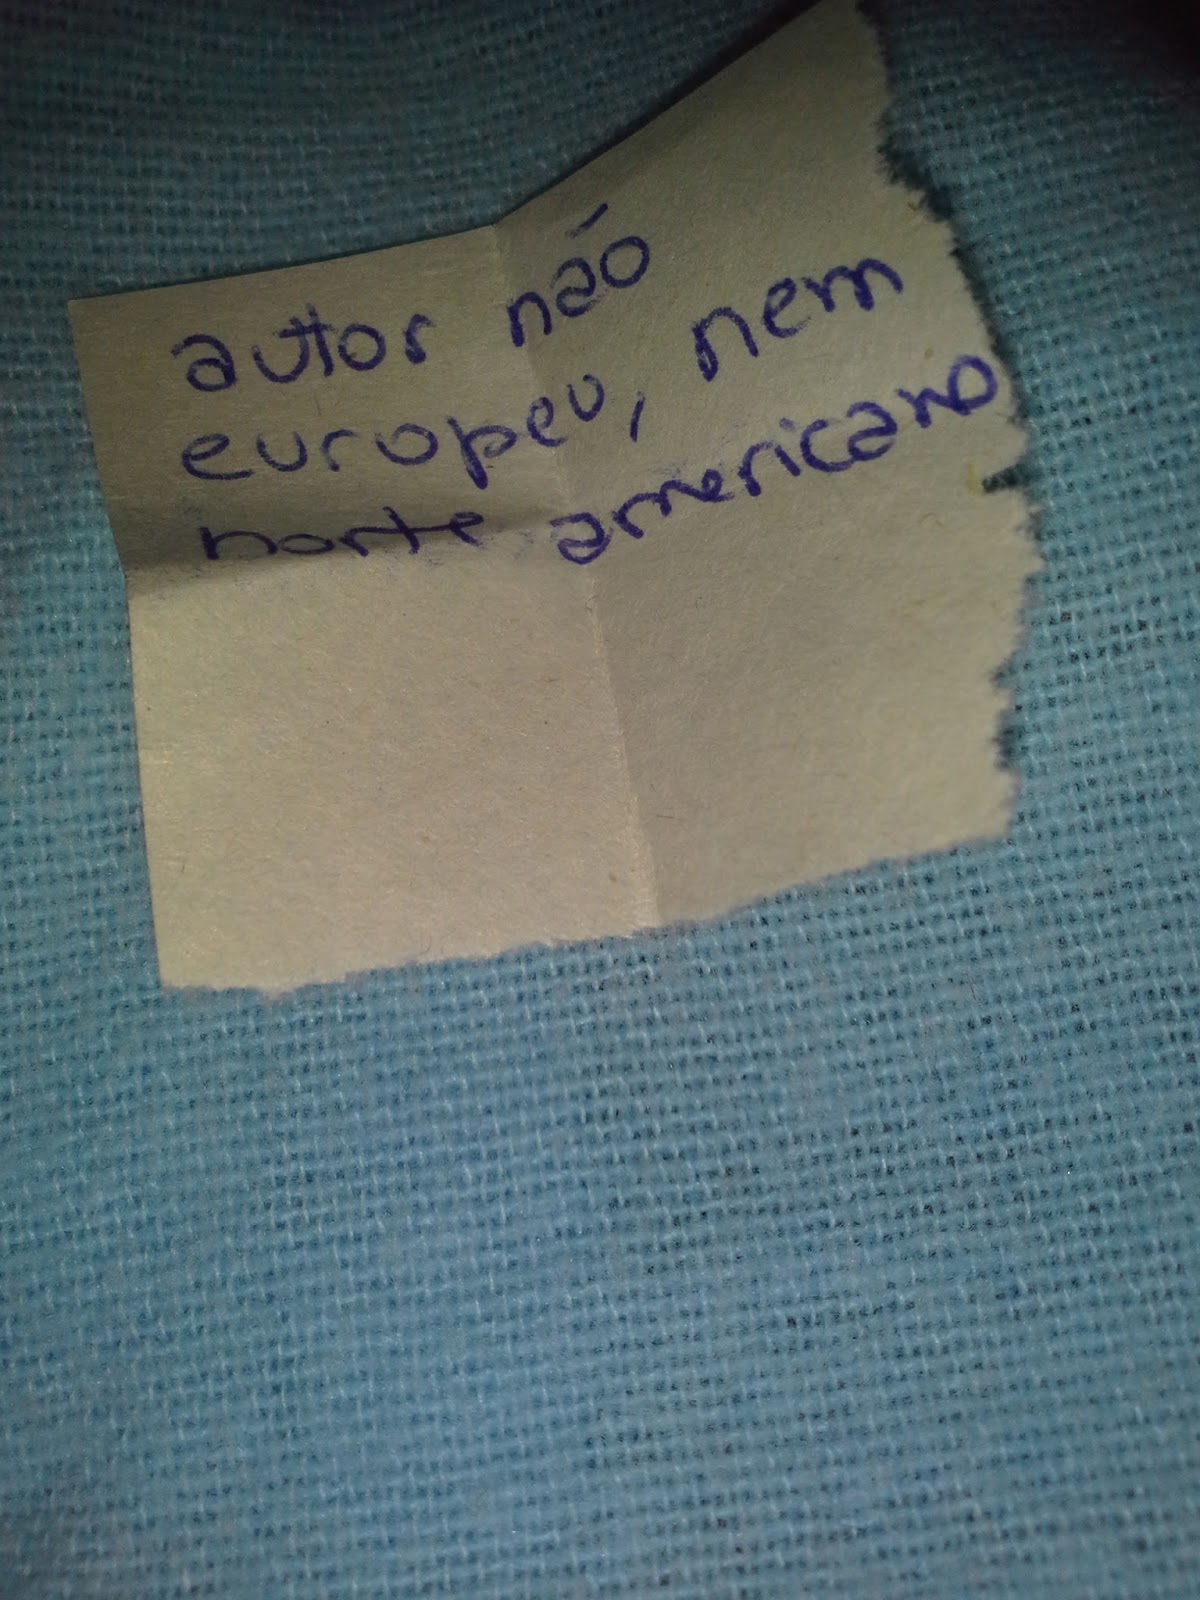 autor não
europeu, nem
norte americano